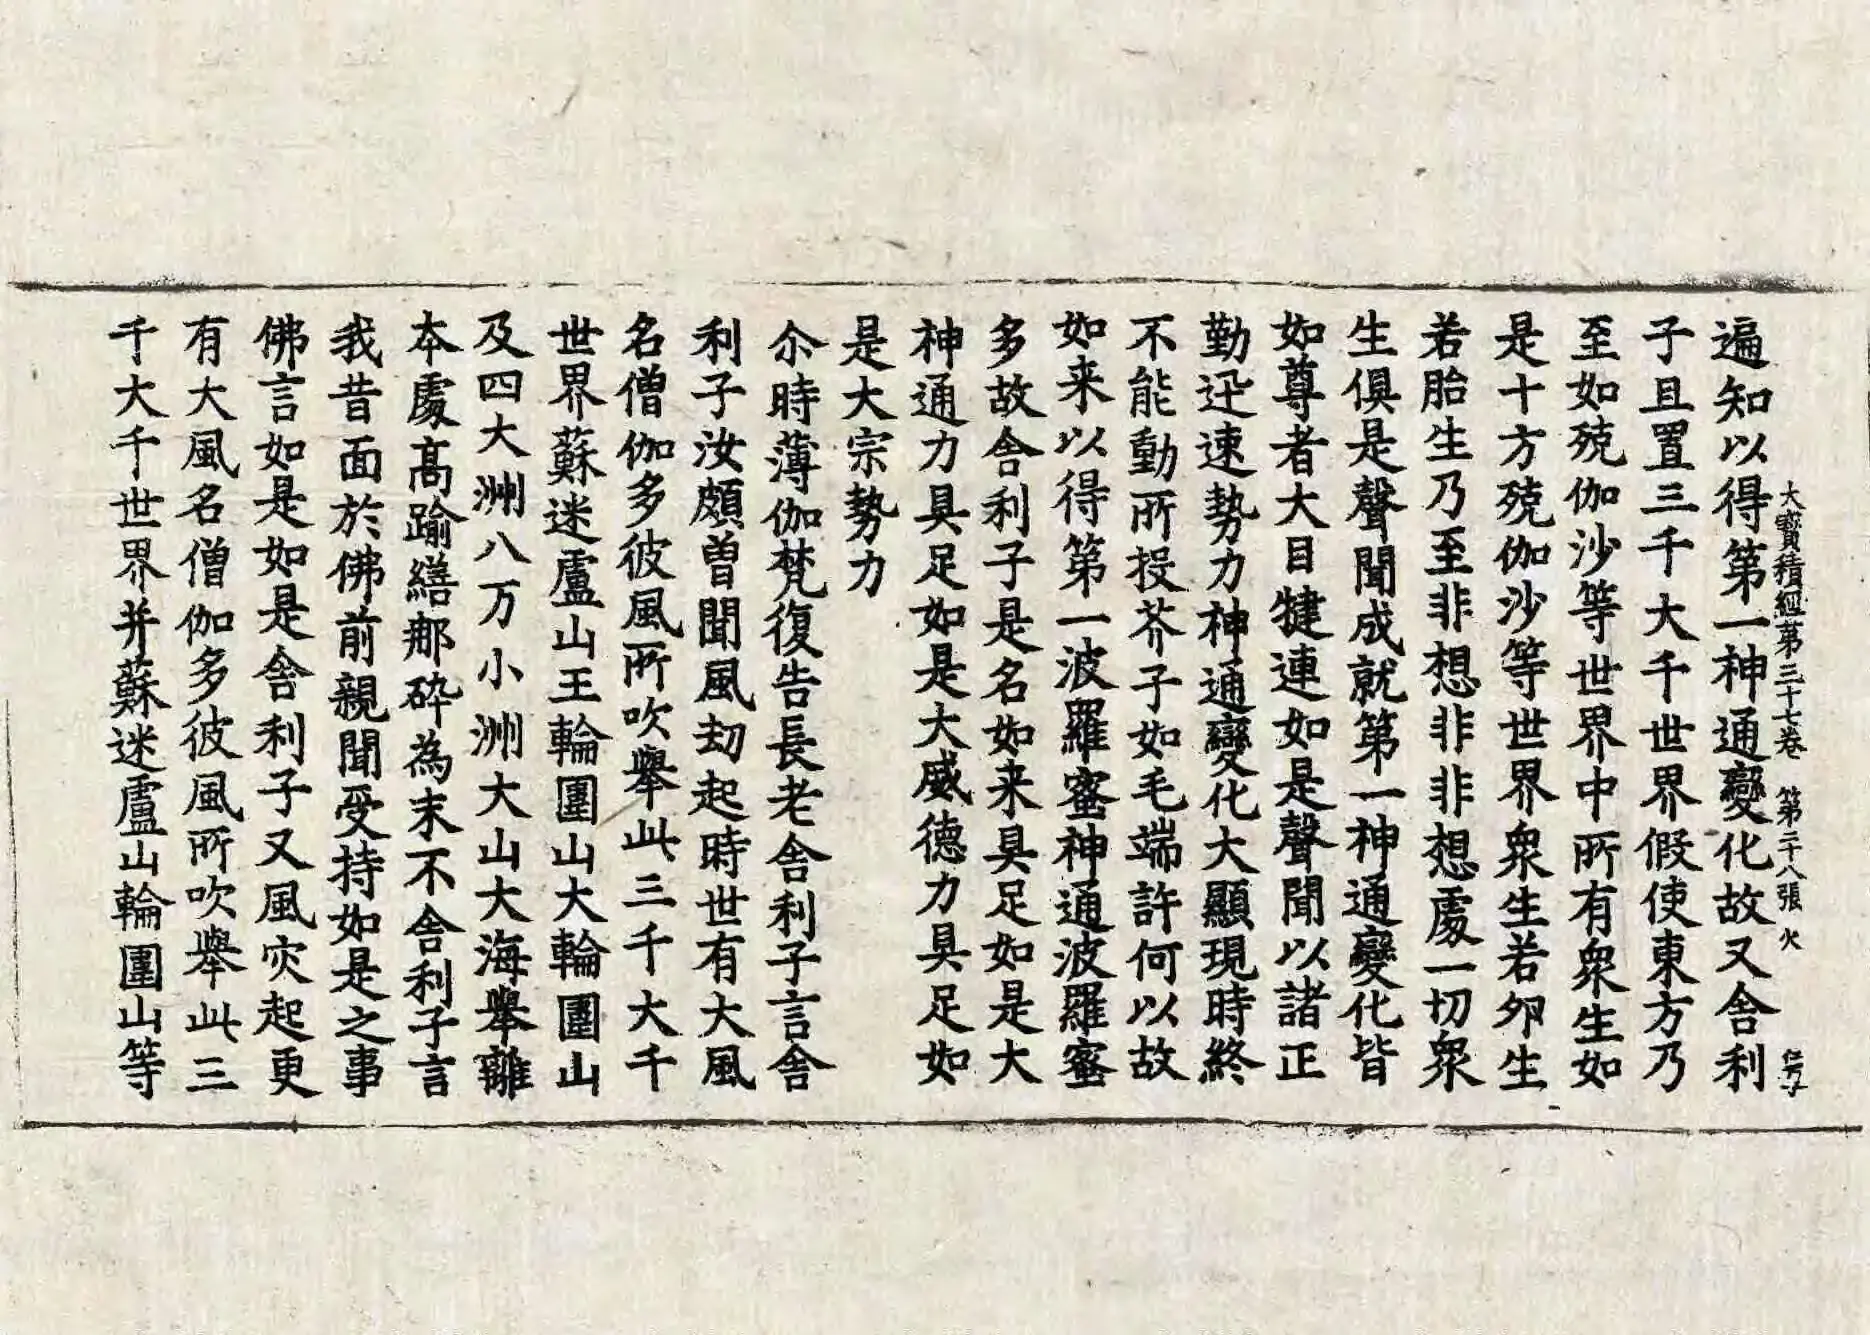 大寶積經第三十七卷 第二十八張 火
遍知以得第一神通變化故又舍利
子且置三千大千世界假使東方乃
至如殑伽沙等世界中所有衆生如
是十方殑伽沙等世界衆生若夘生
若胎生乃至非想非非想處一切衆
生俱是聲聞成就第一神通變化皆
如尊者大目犍連如是聲聞以諸正
勤迅速勢力神通變化大顯現時終
不能動所投芥子如毛端許何以故
如来以得第一波羅蜜神通波羅蜜
多故舍利子是名如来具足如是大
神通力具足如是大威德力具足如
是大宗勢力
尒時薄伽梵復告長老舍利子言舍
利子汝頗曽聞風刧起時世有大風
名僧伽多彼風所吹舉此三千大千
世界蘇迷盧山王輪圍山大輪圍山
及四大洲八万小洲大山大海舉離
本處髙踰繕郍碎為末不舍利子言
我昔面於佛前親聞受持如是之事
佛言如是如是舍利子又風灾起更
有大風名僧伽多彼風所吹舉此三
千大千世界并蘇迷盧山輪圍山等